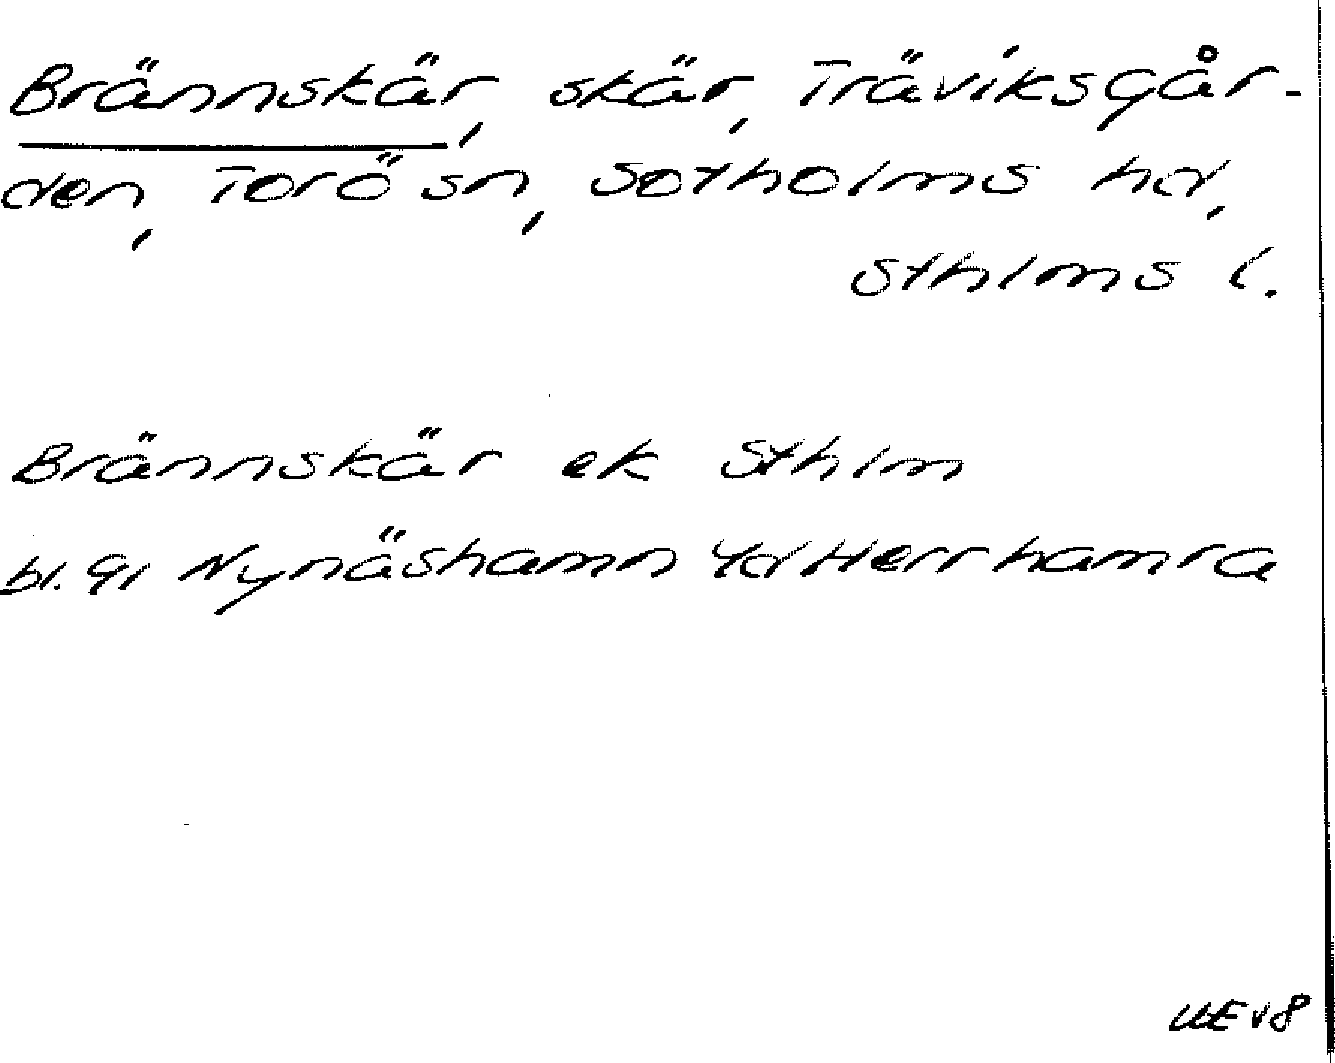 Brännskär, skär, Träviksgår-
den, Torö sn, Sotholms hd,
Sthlms l.
Brännskär ek Sthlm
bl. 91 Nynäshamn 4d Herrhamra